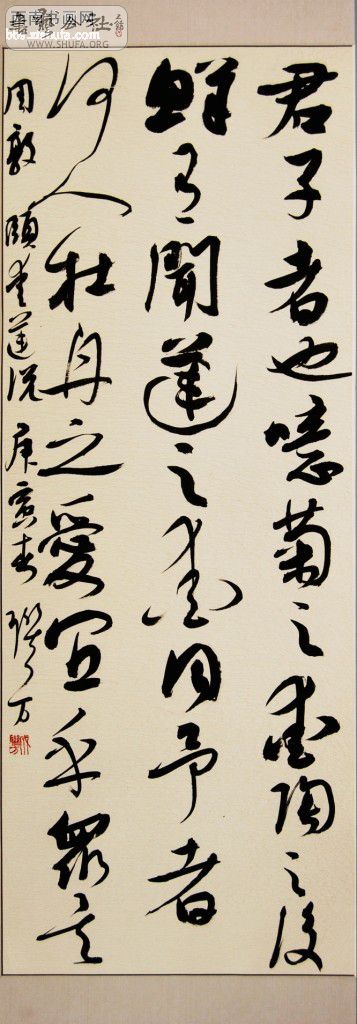 WWW.SHUFA.ORG
君子者也噫菊之愛陶之後
鮮有聞蓮之愛同予者
何人牡丹之愛宜乎眾矣
周敦頤愛蓮說 庚寅春